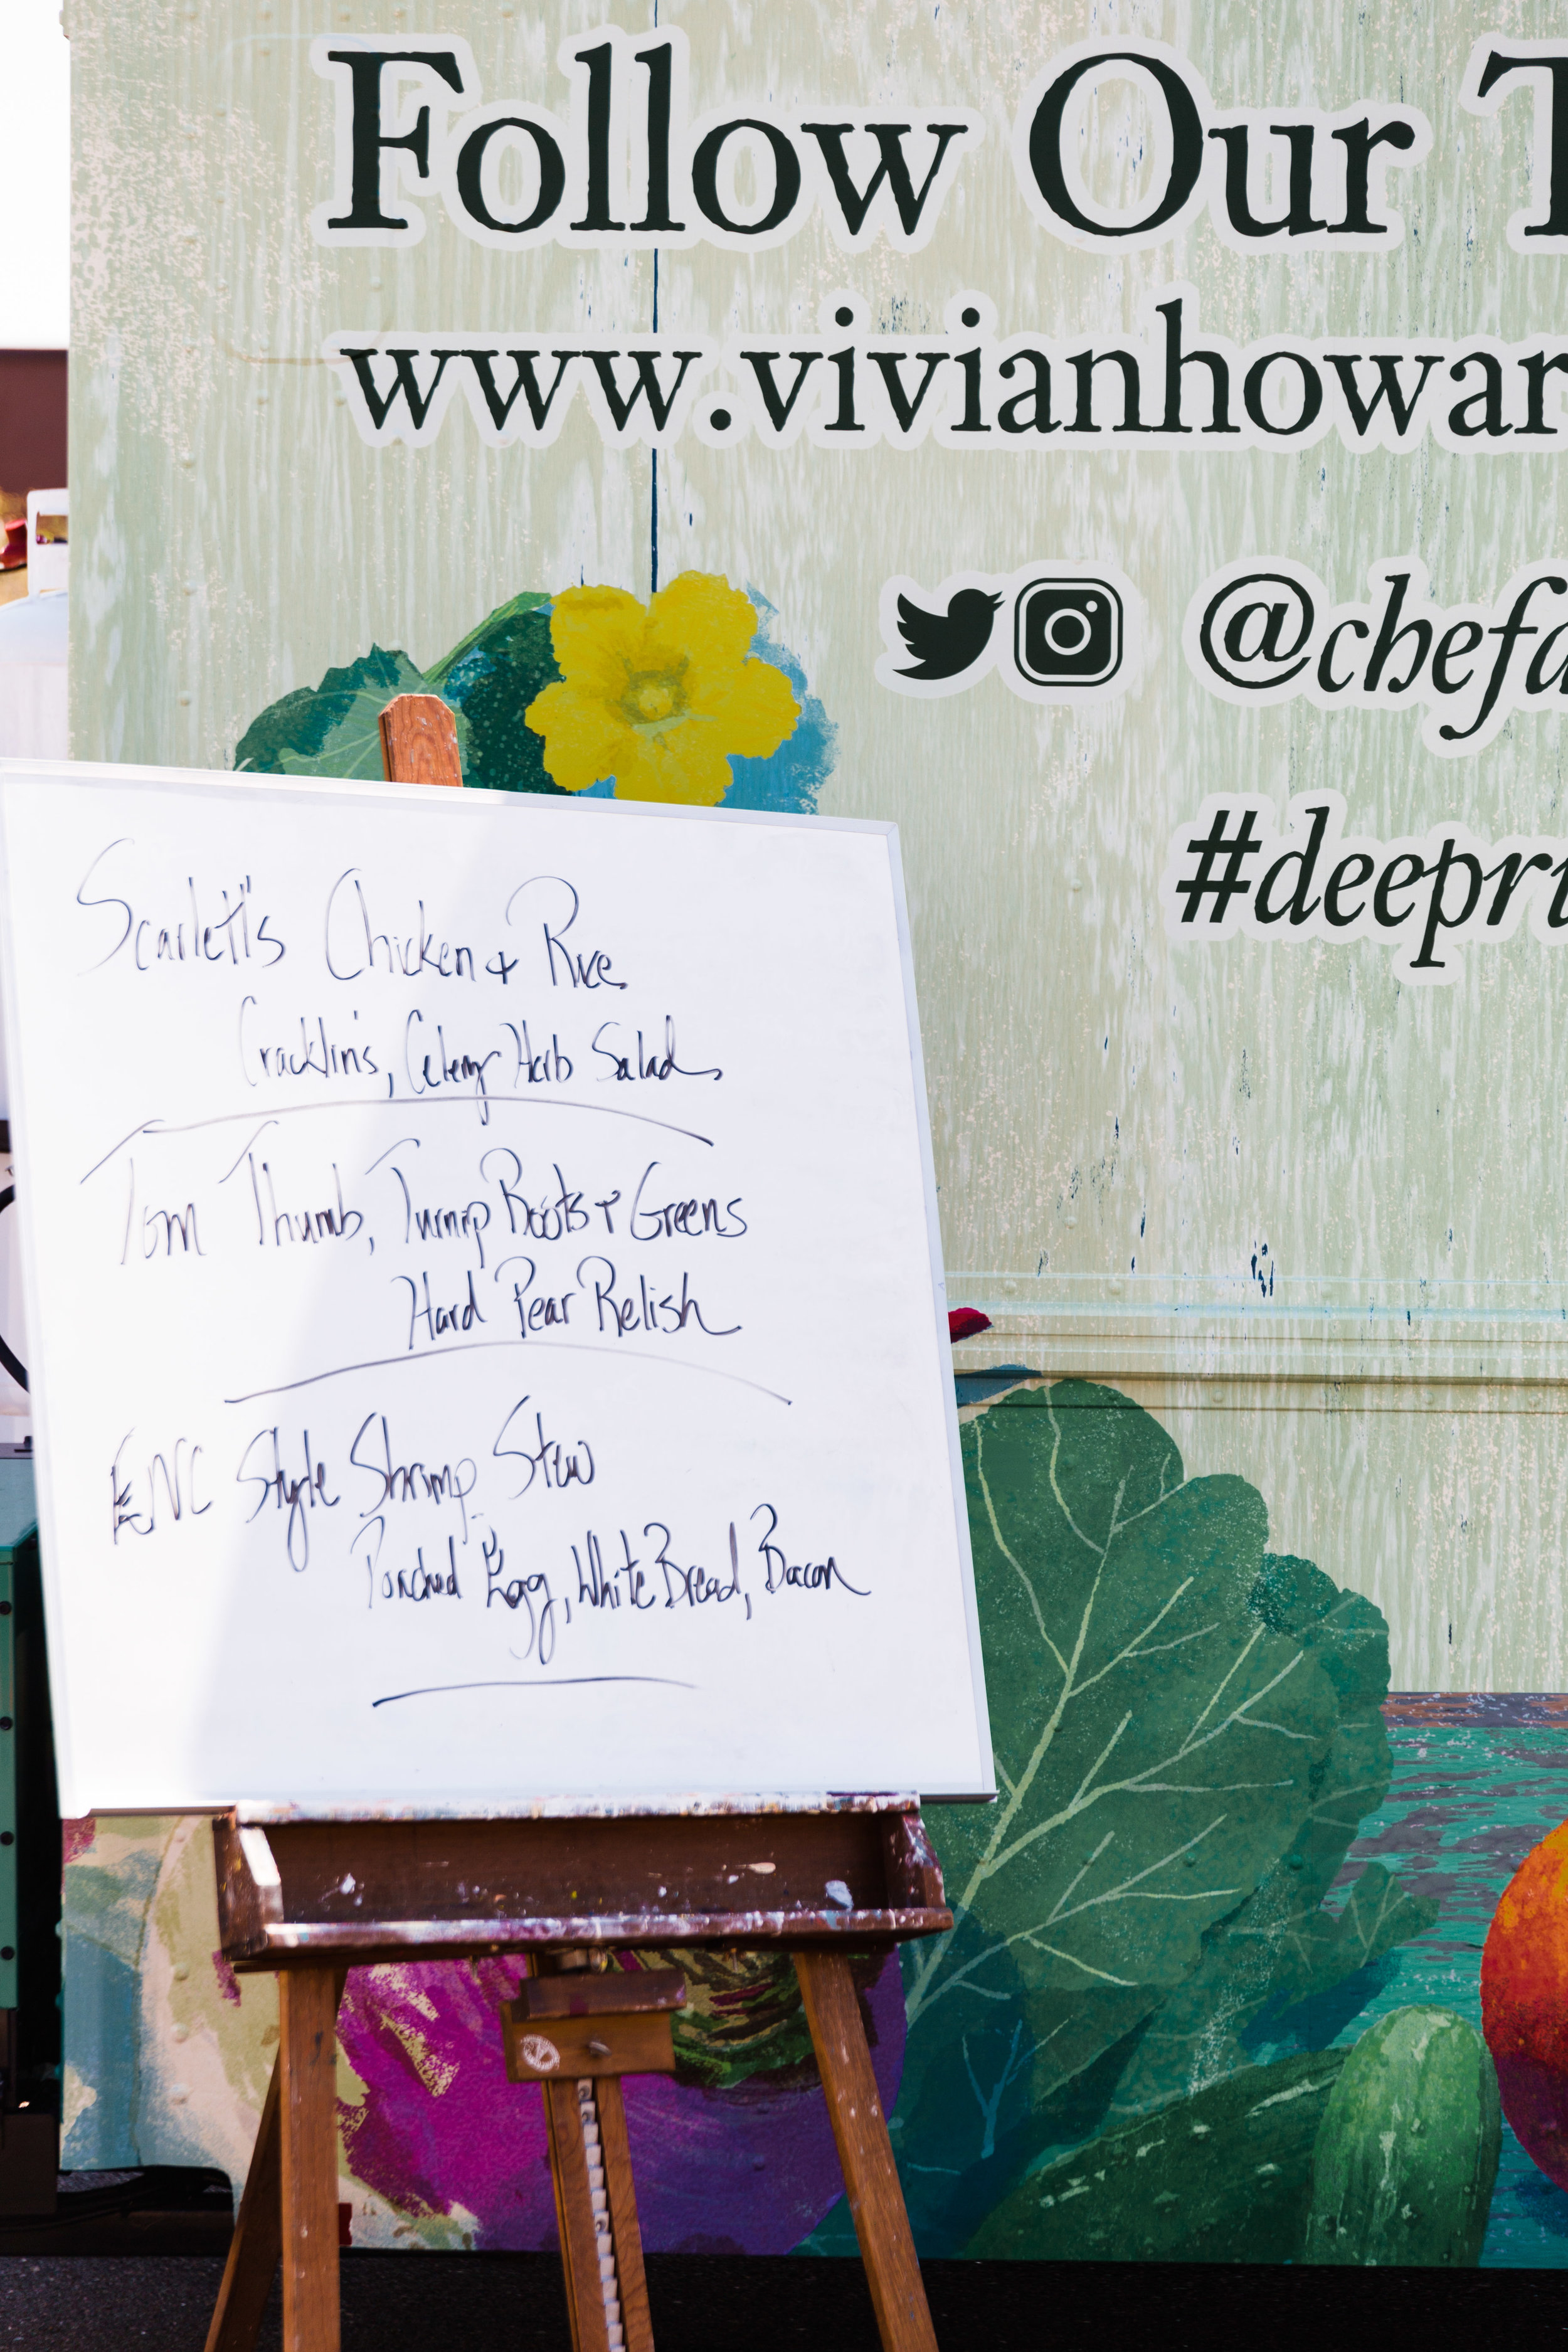 Follow Our T
www.vivianhowar
@chefa
#deepr
Scarlett's Chicken + Rice
Cracklin's, Celery Herb Salad
Tom Thumb, Turnip Roots + Greens
Hard Pear Relish
ENC Style Shrimp Stew
Poached Egg, White Bread, Bacon